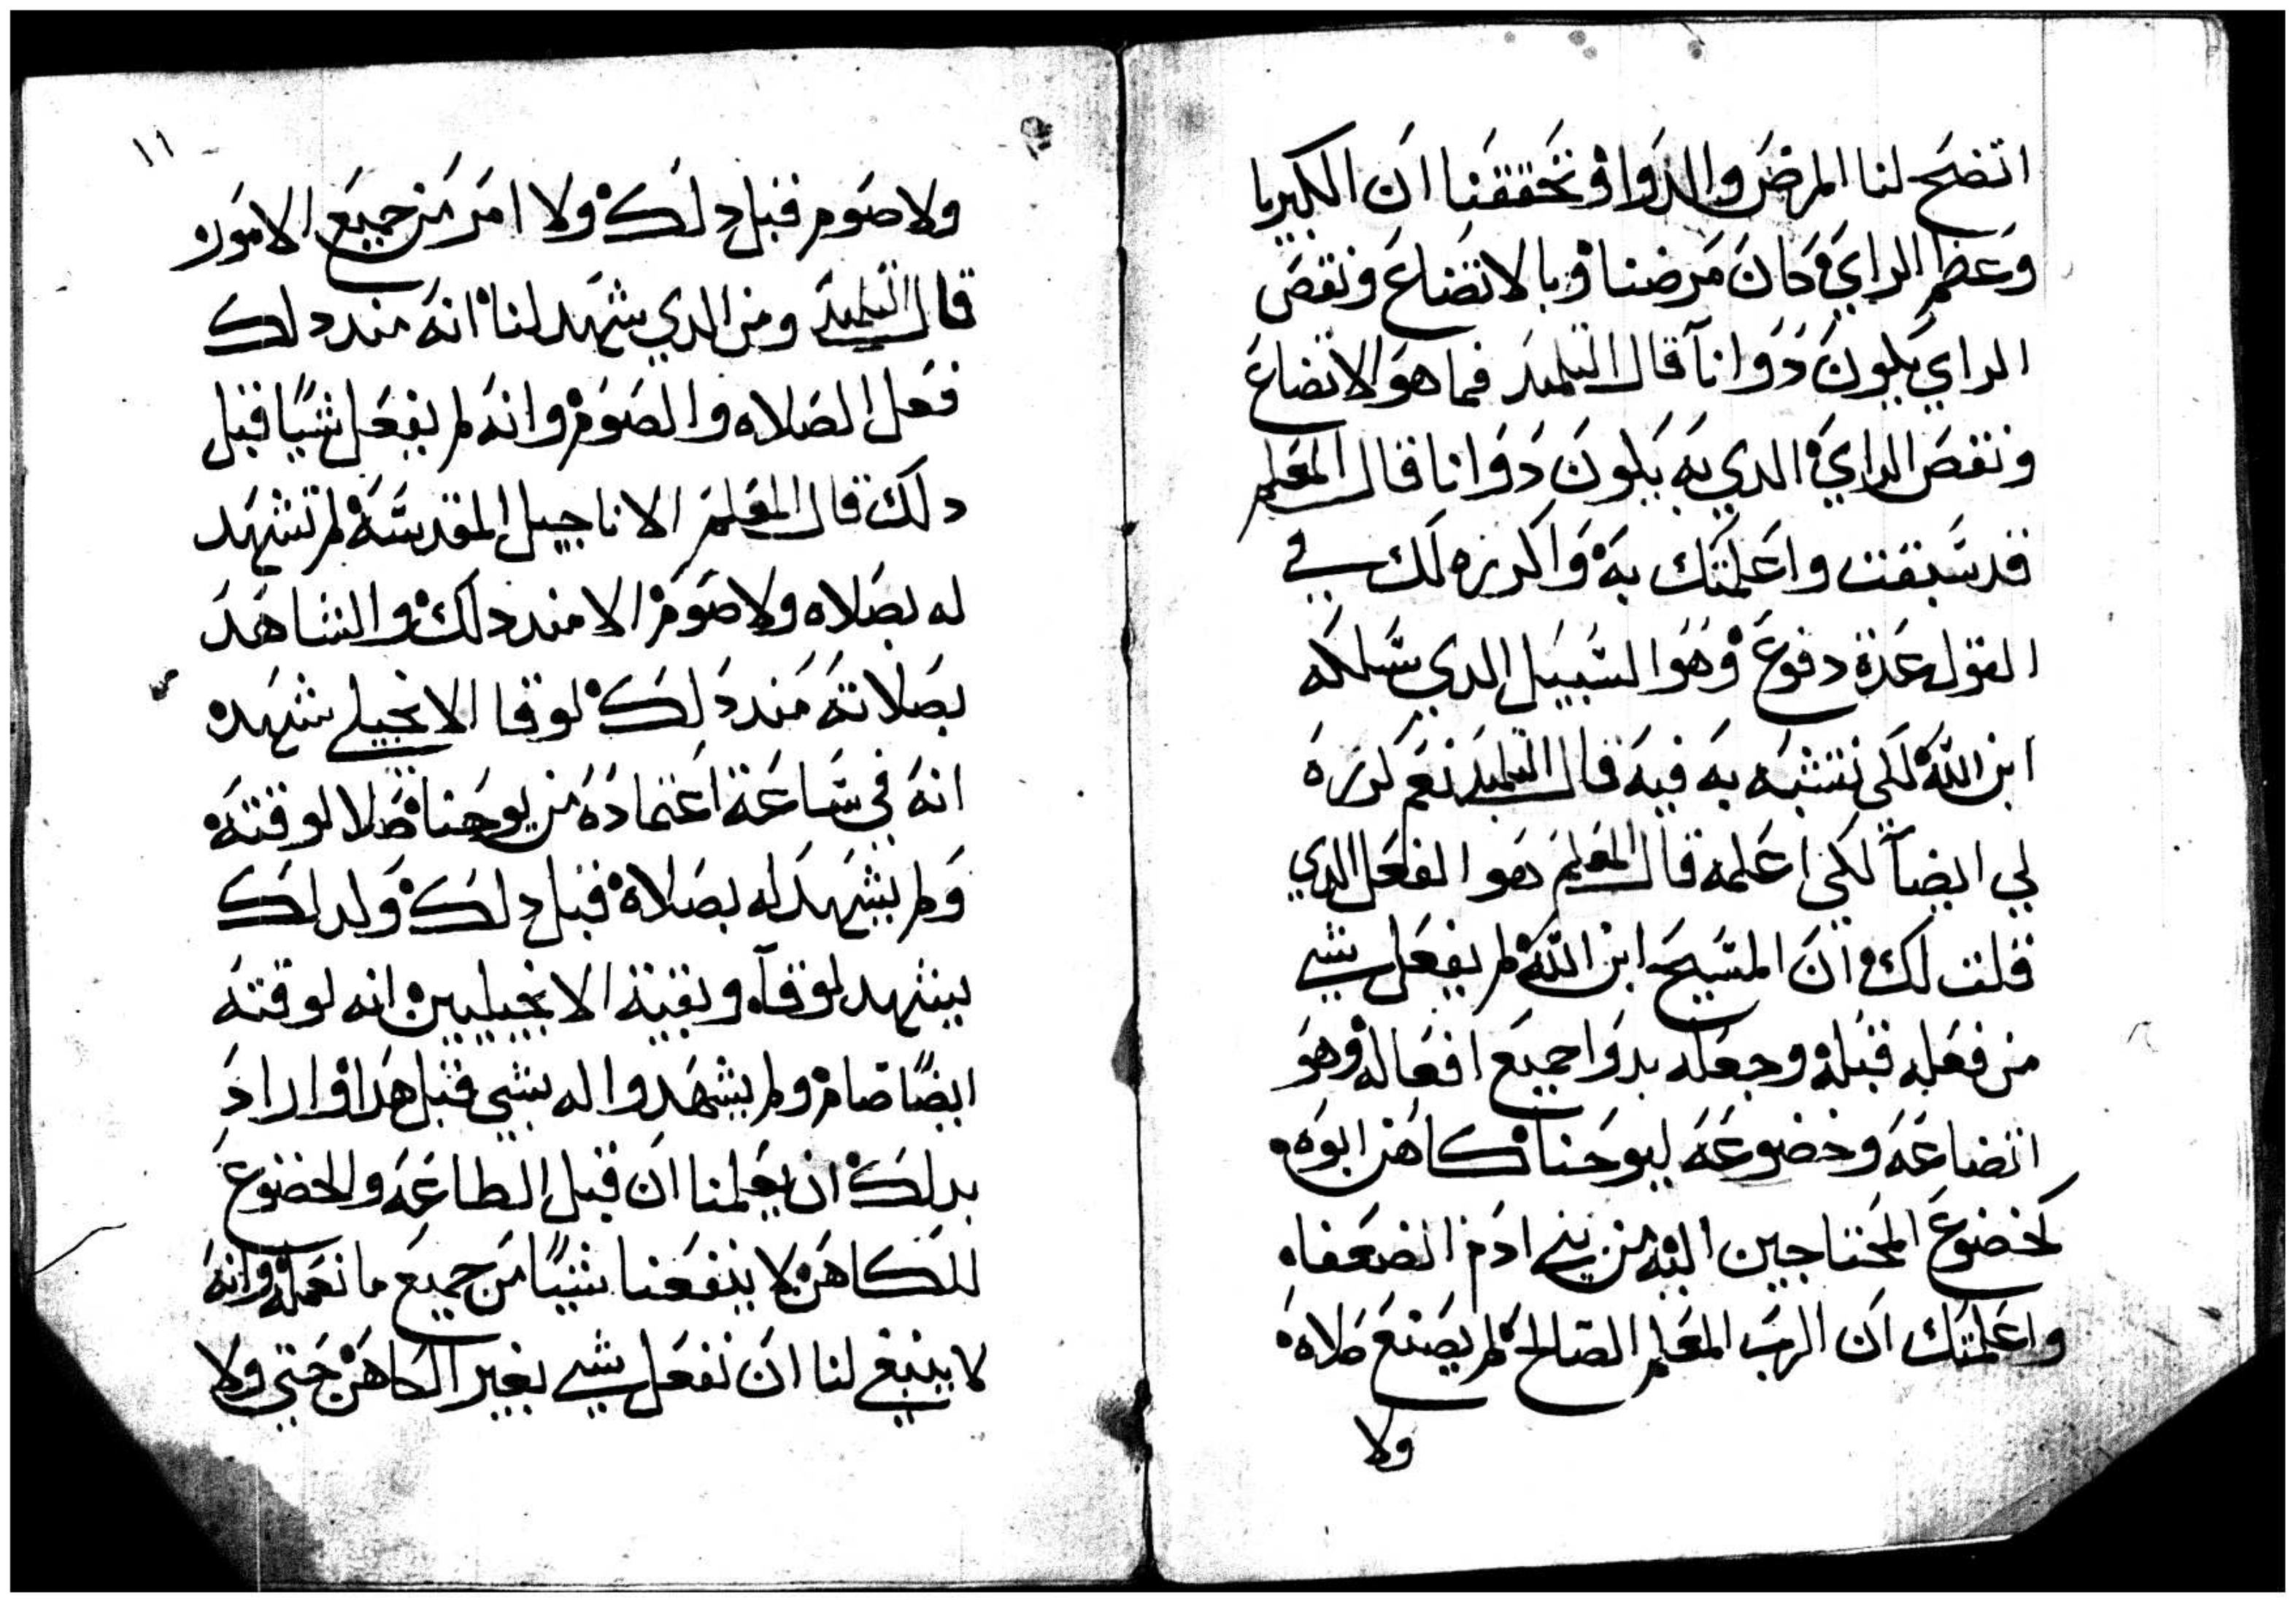 اتضح لنا المرض والدوا وتحققنا ان الكبريا
وعظم الراي كان مرضنا وبالاتضاع ونقص
الراي يكون دوانا قال التلميد فما هو الاتضاع
ونقص الراي الدي به يكون دوانا قال المعلم
قد سبقت واعلمتك به واكرزه لك في
القول عدة دفوع وهوا السبيل الدي سلكه
ابن الله لكي نتشبه به فيه قال التلميد نعم كرزه
لي ايضاً لكي اعلمه قال المعلم هو الفعل الدي
قلت لك ان المسيح ابن الله لم يفعل شي
من فعله قبله وجعله بدوا جميع افعاله وهو
اتضاعه وخضوعه ليوحنا كاهن ابوه
كخضوع المحتاجين اليه من بني ادم الضعفاه
واعلمتك ان الرب المعلم الصالح لم يصنع صلاه
ولا
١١
ولا صوم قبل دلك ولا امر من جميع الامور
قال التلميد ومن الدي شهد لنا انه مند دلك
فعل الصلاه والصوم وانه لم يفعل شيًا قبل
دلك قال المعلم الاناجيل المقدسة لم تشهد
له بصلاه ولا صوم الا مند دلك والشاهد
بصلاته مند دلك لوقا الانجيلي شهده
انه في ساعة اعتماده من يوحنا صلا لوقته
ولم يشهد له بصلاة قبل دلك ولدلك
يشهد لوقا وبقية الانجيليين انه لوقته
ايضًا صام ولم يشهدوا له بشي قبل هدا واراد
بدلك ان يعلمنا ان قبل الطاعه والخضوع
للكاهن لا ينفعنا شيًا من جميع ما نعمله وانه
لا ينبغي لنا ان نفعل شي بغير الكاهن حتي ولا